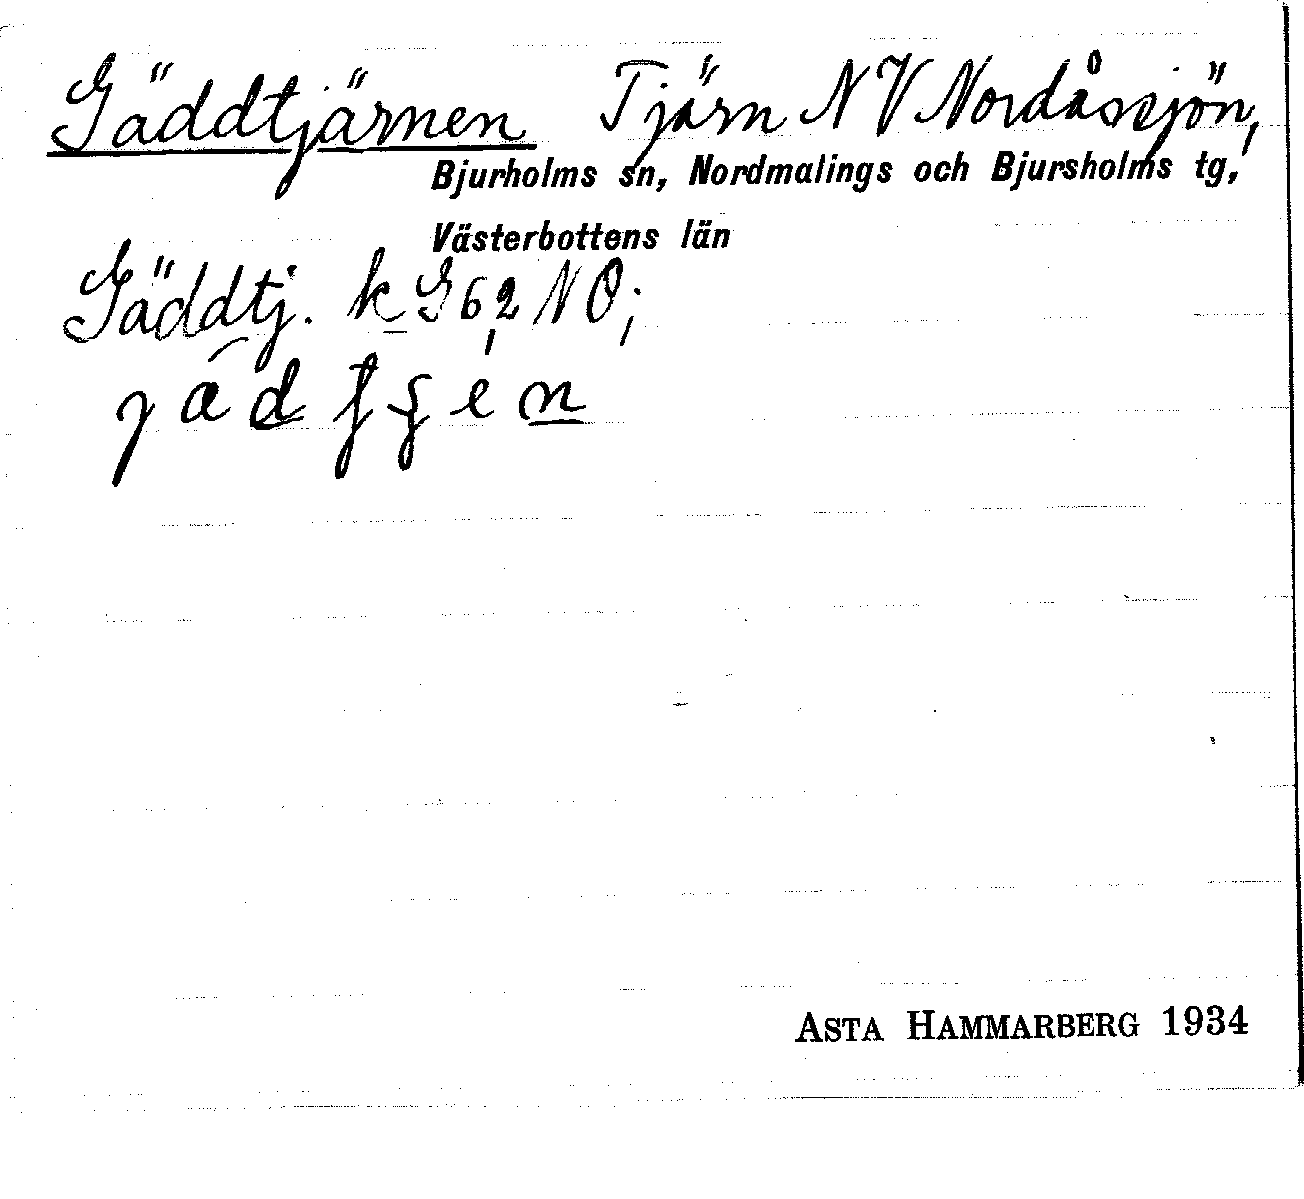 Gäddtjärnen Tjärn NV Nordåssjön,
Bjurholms sn, Nordmalings och Bjursholms tg,
Västerbottens län
Gäddtj. k G62 NO;
ASTA HAMMARBERG 1934